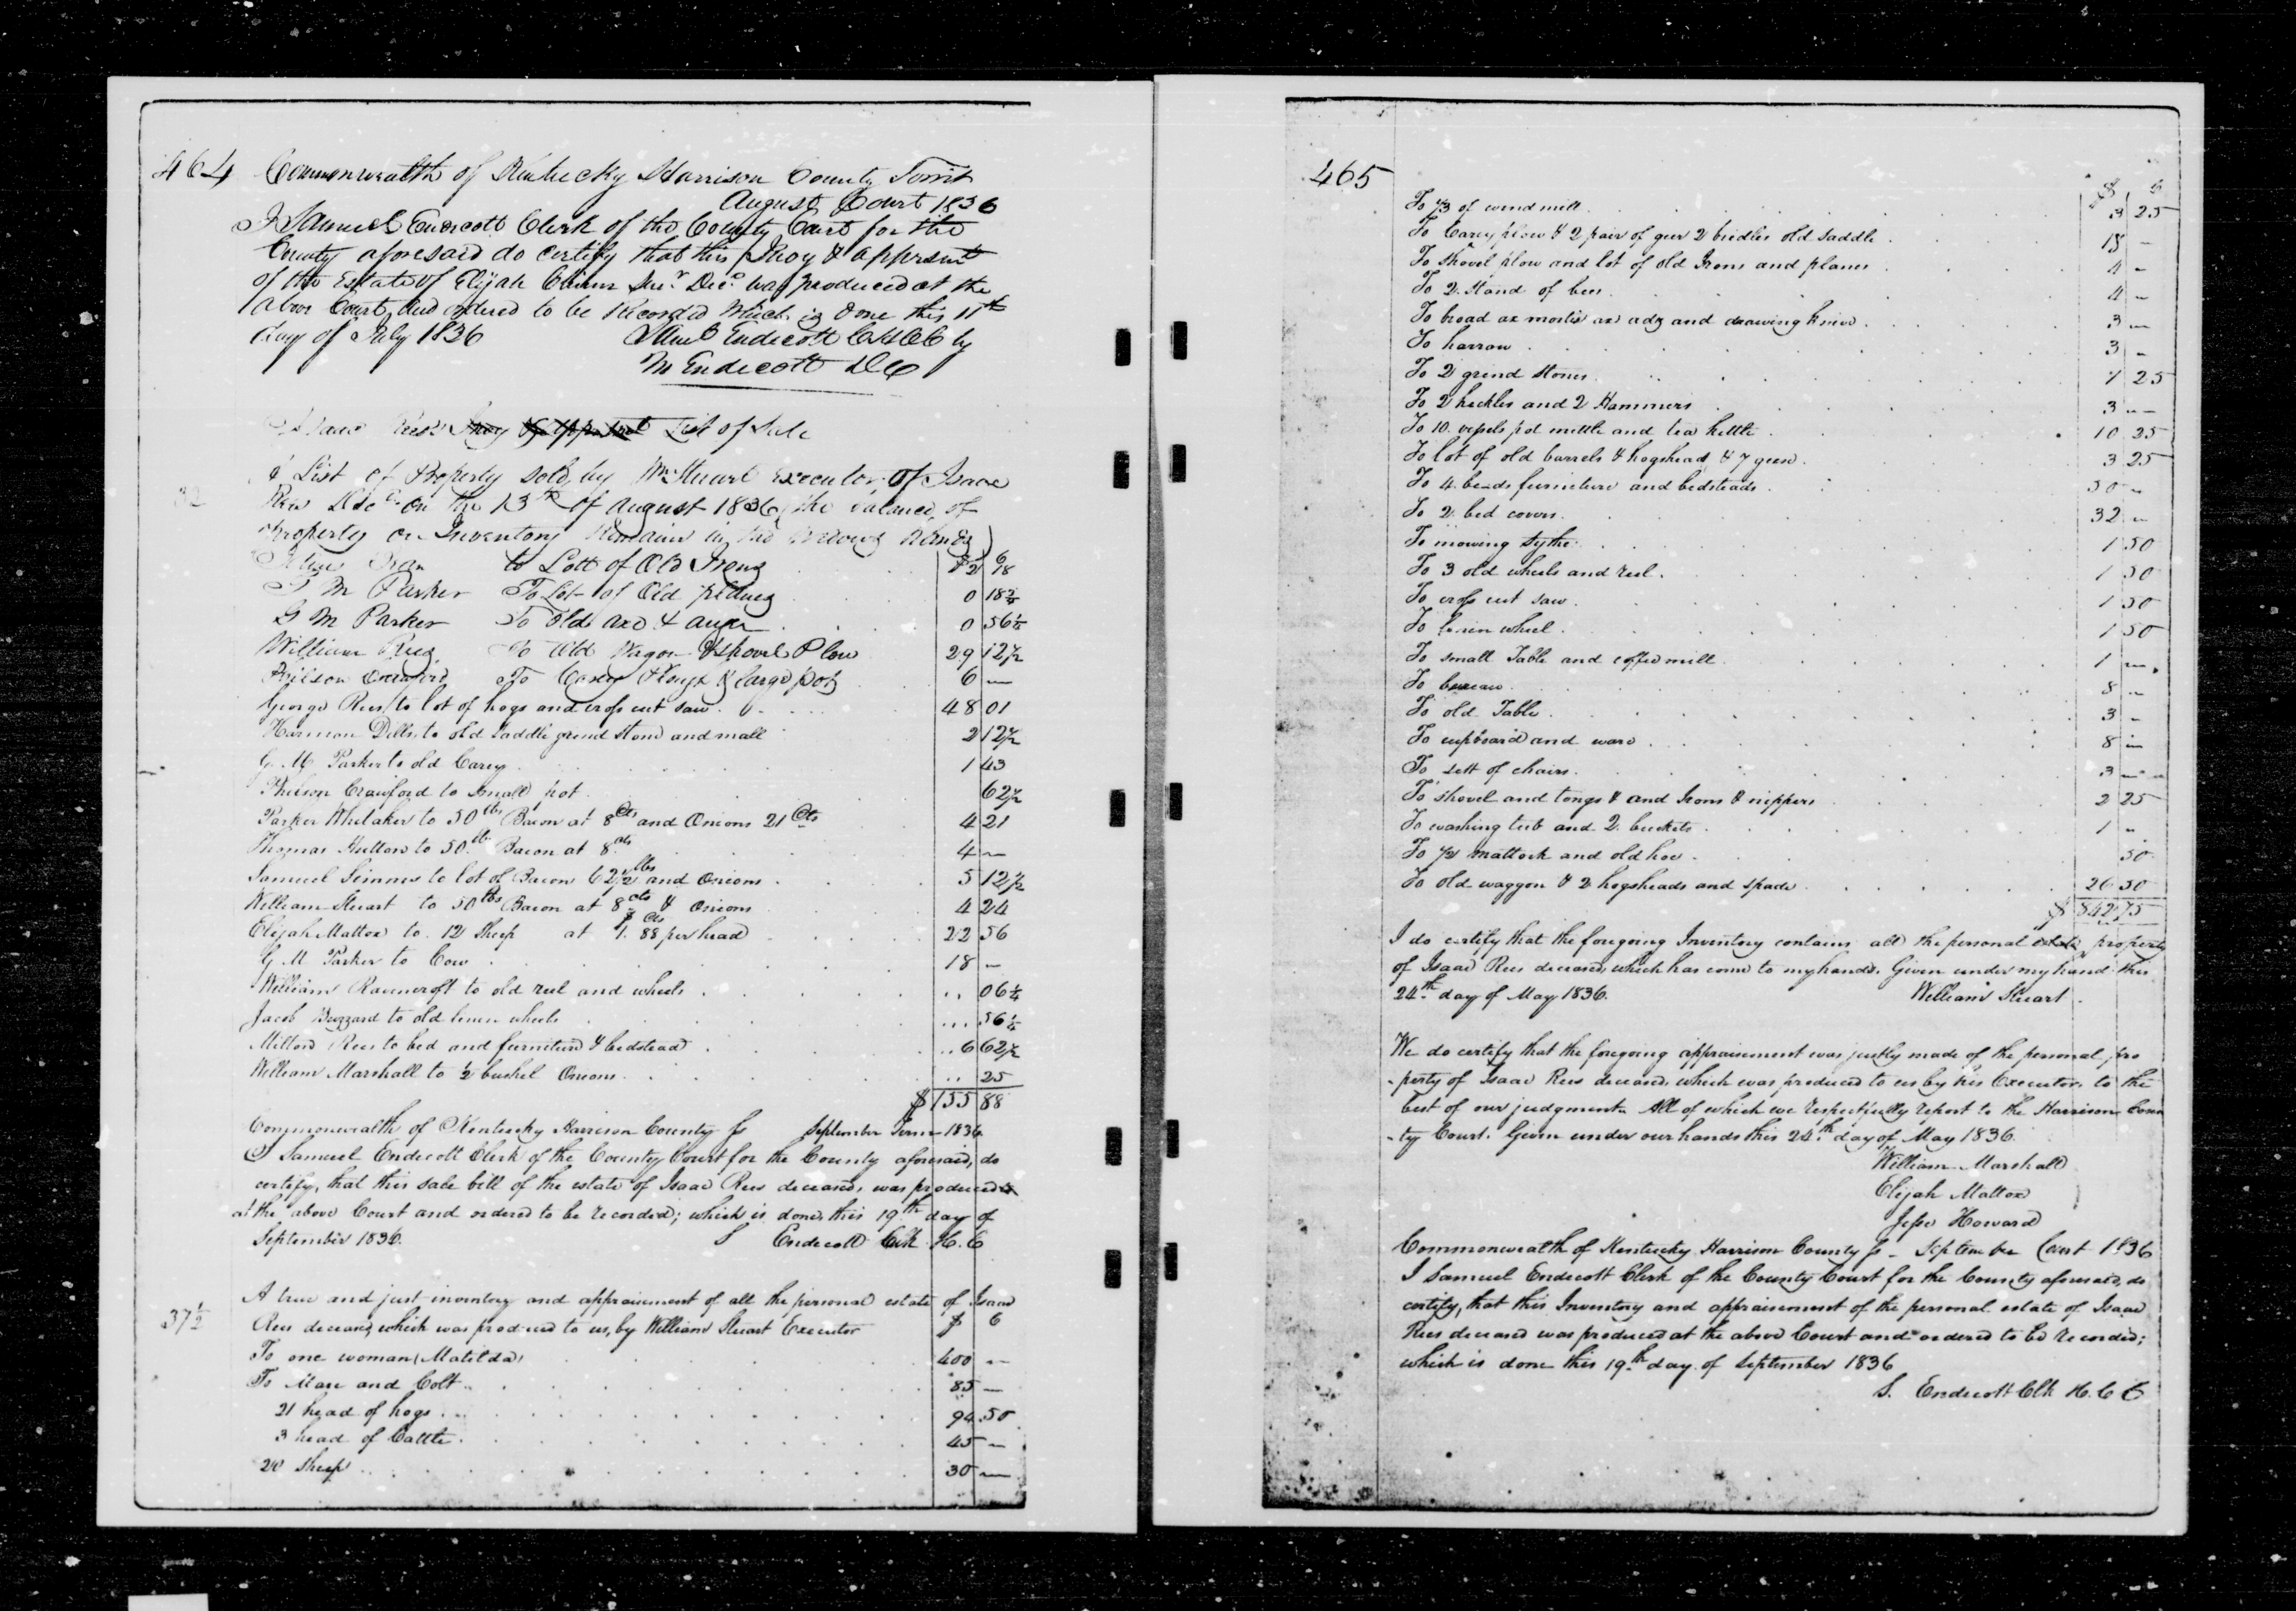 464
Commonwealth of Kentucky Harrison County Towit
August Court 1836
I Samuel Endecott Clerk of the County Court for the
County aforesaid do certify that this Invoy & apprsmt
of the Estate of Elijah Decd was produced at the
above Court and ordered to be Recorded Which is done this 11th
day of July 1836 Saml Endecott C H C C by
M Endecott D C
Isaac Rees Invoy & Apprsmt List of Sale
A List of Property sold by Wm Stuart Executor of Isaac
Rees Decd on the 13th of August 1836 (the balance of
Property on Inventory Remains in the widows hands)
to Lott of Old Irons $2 18
G M Parker To Lot of Old 0 18¾
G M Parker To Old axe & auger 0 56¼
William Rees To Old Wagon & shovel Plow 29 12½
Philson Crawford To Carey Plough & large pot 6 —
George Rees to lot of hogs and cross cut saw 48 01
Harmon Dills to old saddle grind stone and mall 2 12½
G. M Parker to old Carey 1 43
Philson Crawford to small pot 62½
Parker Whitaker to 50 lbs Bacon at 8 Cts and Onions 21 Cts 4 21
Thomas Hutton to 50 lb Bacon at 8 cts 4 —
Samuel Simms to lot of Bacon 62½ lbs and Onions 5 12½
William Stuart to 50 lbs Bacon at 8 cts & Onions 4 24
Elijah Mattox to 12 Sheep at $1. 88 Cts per head 22 56
G M Parker to Cow 18 —
William Ravencroft to old reel and wheels 06¼
Jacob Buzzard to old linen wheels 56¼
Milton Rees to bed and furniture & bedstead 6 62½
William Marshall to ½ bushel Onions 25
$155 88
Commonwealth of Kentucky Harrison County ss September Term 1836
I Samuel Endecott Clerk of the County Court for the County aforesaid, do
certify, that this sale bill of the estate of Isaac Rees deceased, was produced
at the above Court and ordered to be recorded; which is done, this 19th day of
September 1836. S Endecott Clk H. C
37½
A true and just inventory and appraisement of all the personal estate of Isaac
Rees deceased, which was produced to us, by William Stuart Executor $ C
To one woman (Matilda) 400 —
To Mare and Colt 85 —
21 head of hogs 94 50
3 head of Cattle 45 —
20 sheep 30 —
465
To ⅓ of wind mill 3 25
To Carey plow & 2 pair of geer 2 bridles old saddle 18 —
To shovel plow and lot of old Irons and planes 4 —
To 2 Stand of bees 4 —
To broad ax mortis ax adz and drawing knive 3 —
To harrow 3 —
To 2 grind stones 1 25
To 2 heckles and 2 Hammers 3 —
To 10 vessels pot mettle and tea kettle 10 25
To lot of old barrels & hogshead & 7 geese 3 25
To 4 beads furniture and bedsteads 50 —
To 2 bed covers 32 —
To mowing sythe 1 50
To 3 old wheels and reel 1 50
To cross cut saw 1 50
To linen wheel 1 50
To small Table and coffee mill 1 —
To bureau 8 —
To old Table 3 —
To cupboard and ware 8 —
To sett of chairs 3 —
To shovel and tongs & and Irons & nippers 2 25
To washing tub and 2 buckets 1 —
To ½ mattock and old hoe 50
To old waggon & 2 hogsheads and spade 26 50
$ 842 75
I do certify that the foregoing Inventory contains all the personal estate property
of Isaac Rees deceased, which has come to my hands. Given under my hand this
24th day of May 1836. William Stuart
We do certify that the foregoing appraisement was justly made of the personal pro
-perty of Isaac Rees deceased, which was produced to us by his Executor, to the
best of our judgment. All of which we respectfully report to the Harrison Coun
-ty Court. Given under our hands this 24th day of May 1836.
William Marshall
Elijah Mattox
Jesse Howard
Commonwealth of Kentucky Harrison County ss - September Court 1836
I Samuel Endecott Clerk of the County Court for the County aforesaid, do
certify, that this Inventory and appraisement of the personal estate of Isaac
Rees deceased was produced at the above Court and ordered to be recorded;
which is done this 19th day of September 1836
S. Endecott Clk H. C C